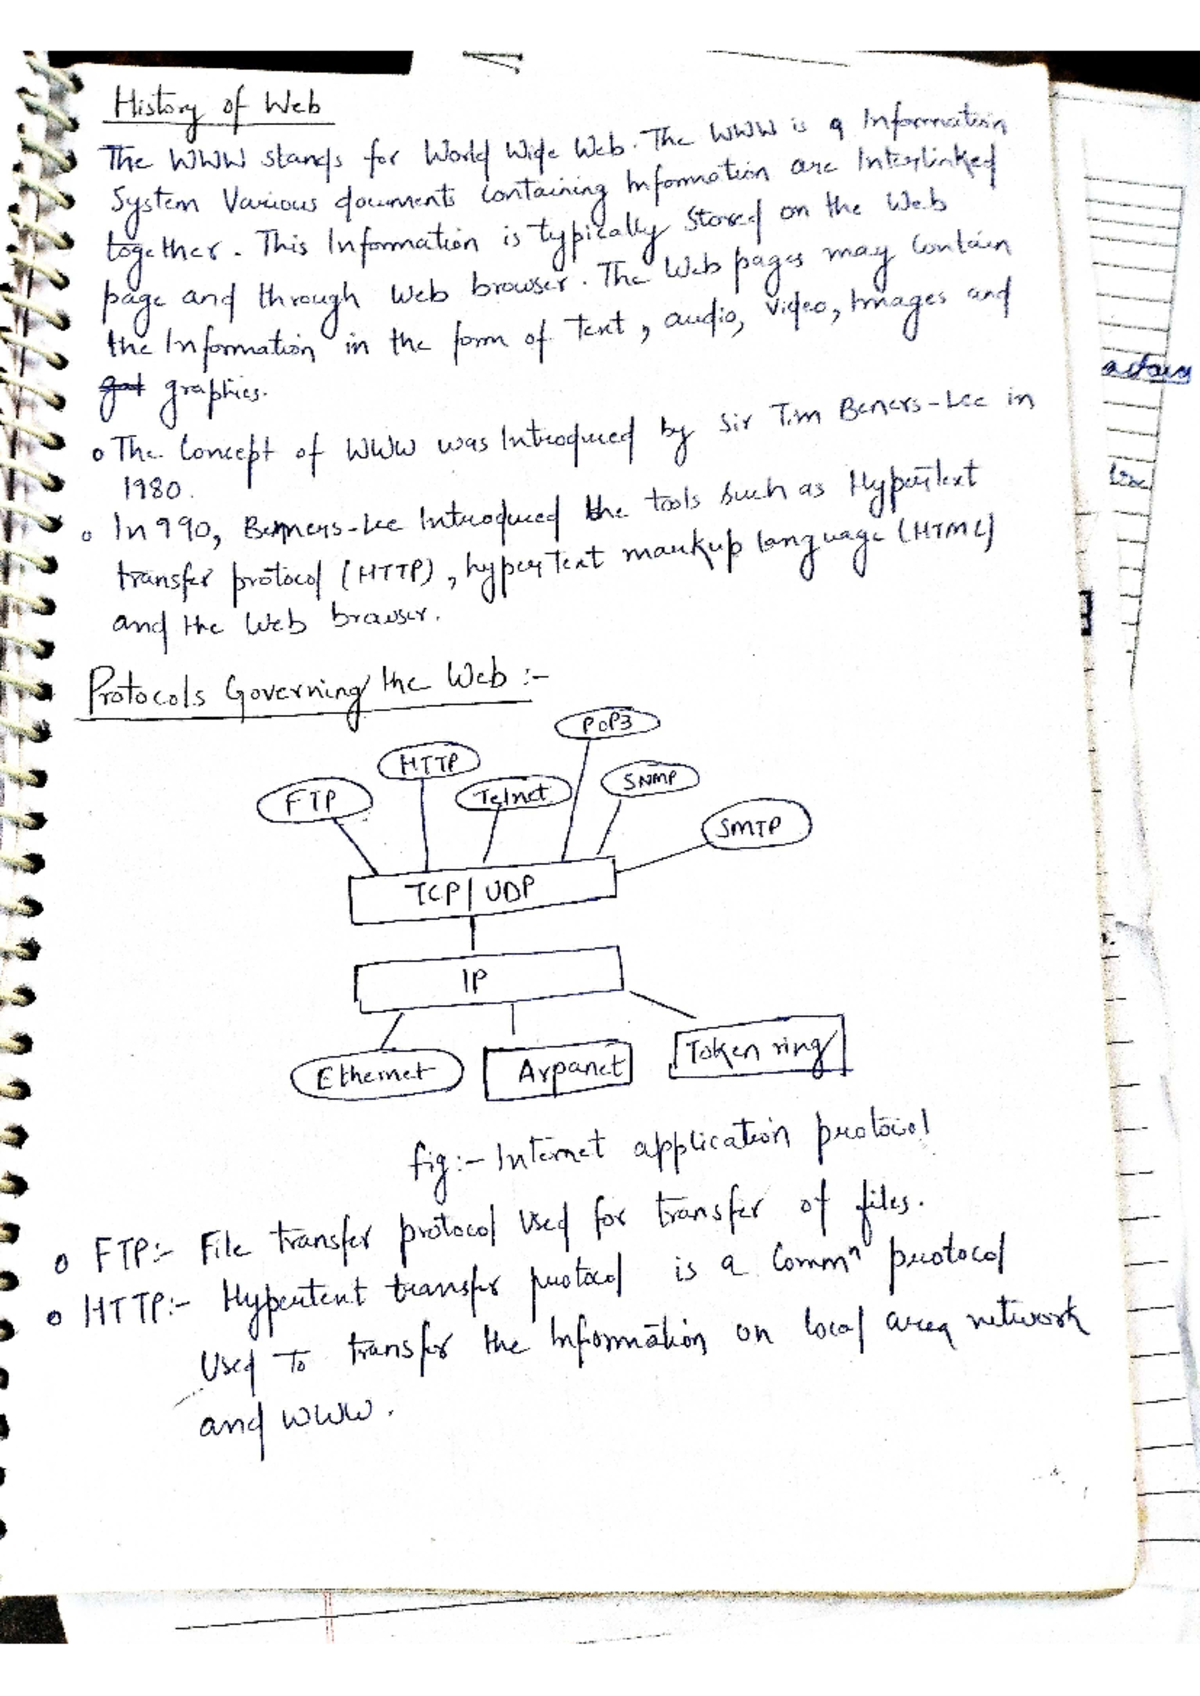 History of Web
The WWW stands for World Wide Web. The WWW is a Information
System Various documents Containing Information are Interlinked
together. This Information is typically Stored on the Web
page and through Web browser. The Web pages may Contain
the Information in the form of Text, audio, Video, Images and
graphics.
The Concept of WWW was Introduced by Sir Tim Beners-Lee in
1980.
In 990, Benners-Lee Introduced the tools Such as Hypertext
transfer protocol (HTTP), hypertext markup language (HTML)
and the Web browser.
Protocols Governing the Web :-
POP3
HTTP
FTP
Telnet
SNMP
SMTP
TCP/UDP
IP
Ethernet
Arpanet
Token ring
fig:- Internet application protocol
FTP:- File transfer protocol Used for transfer of files.
HTTP:- Hypertext transfer protocol is a Commn protocol
Used To transfer the Information on local area network
and WWW.